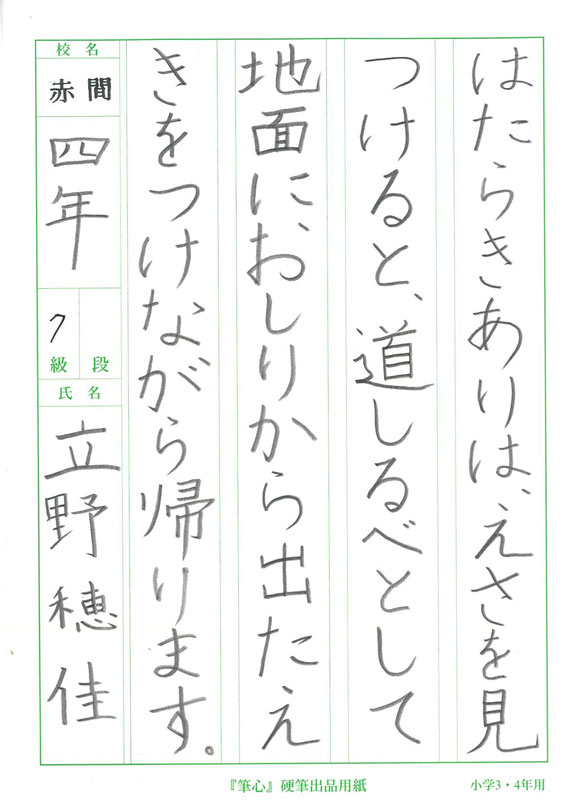 はたらきありは、えさを見
つけると、道しるべとして
地面に、おしりから出たえ
きをつけながら帰ります。
校名
赤間
四年
7
級 段
氏名
立野穂佳
『筆心』硬筆出品用紙
小学3・4年用